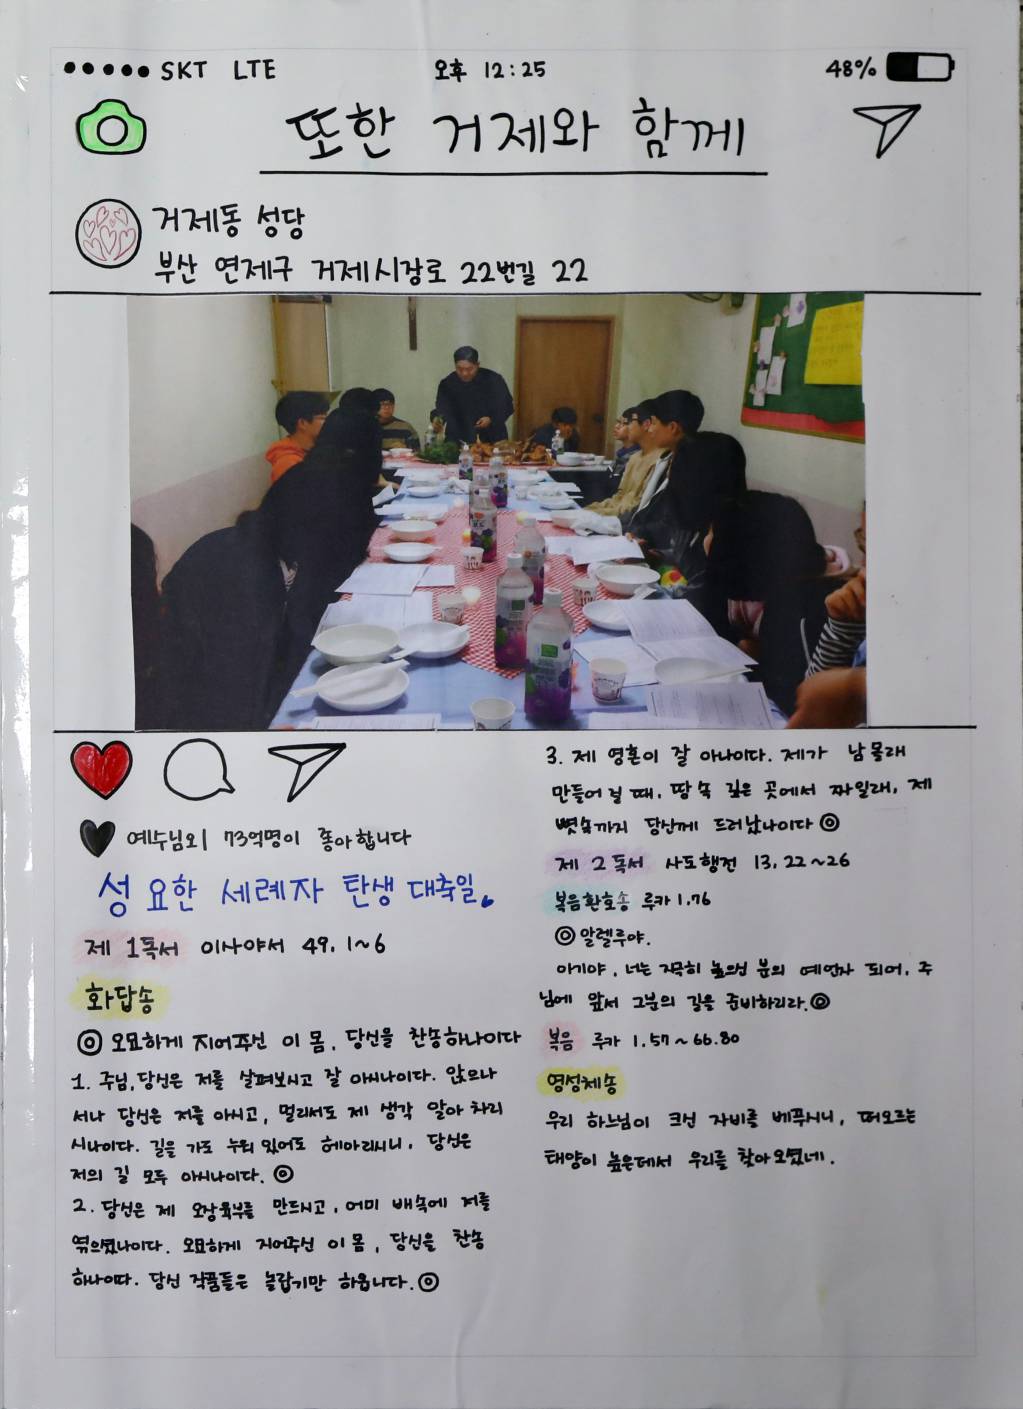 ●●●●● SKT LTE 오후 12:25 48%
또한 거제와 함께
거제동 성당
부산 연제구 거제시장로 22번길 22
예수님외 73억명이 좋아합니다
성 요한 세례자 탄생 대축일.
제 1독서 이사야서 49, 1~6
화답송
◎ 오묘하게 지어주신 이 몸, 당신을 찬송하나이다
1. 주님, 당신은 저를 살펴보시고 잘 아시나이다. 앉으나
서나 당신은 저를 아시고, 멀리서도 제 생각 알아 차리
시나이다. 길을 가도 누워 있어도 헤아리시니, 당신은
저의 길 모두 아시나이다. ◎
2. 당신은 제 오장육부를 만드시고, 어미 배속에 저를
엮으셨나이다. 오묘하게 지어주신 이 몸, 당신을 찬송
하나이다. 당신 작품들은 놀랍기만 하옵니다. ◎
3. 제 영혼이 잘 아나이다. 제가 남몰래
만들어 질 때, 땅 속 깊은 곳에서 짜일래, 제
뼛속까지 당신께 드러났나이다 ◎
제 2독서 사도행전 13, 22~26
복음환호송 루카 1,76
◎ 알렐루야.
아기야, 너는 지극히 높으신 분의 예언자 되어, 주
님에 앞서 그분의 길을 준비하리라. ◎
복음 루카 1.57~66.80
영성체송
우리 하느님이 크신 자비를 베푸시니, 떠오르는
태양이 높은데서 우리를 찾아 오셨네.